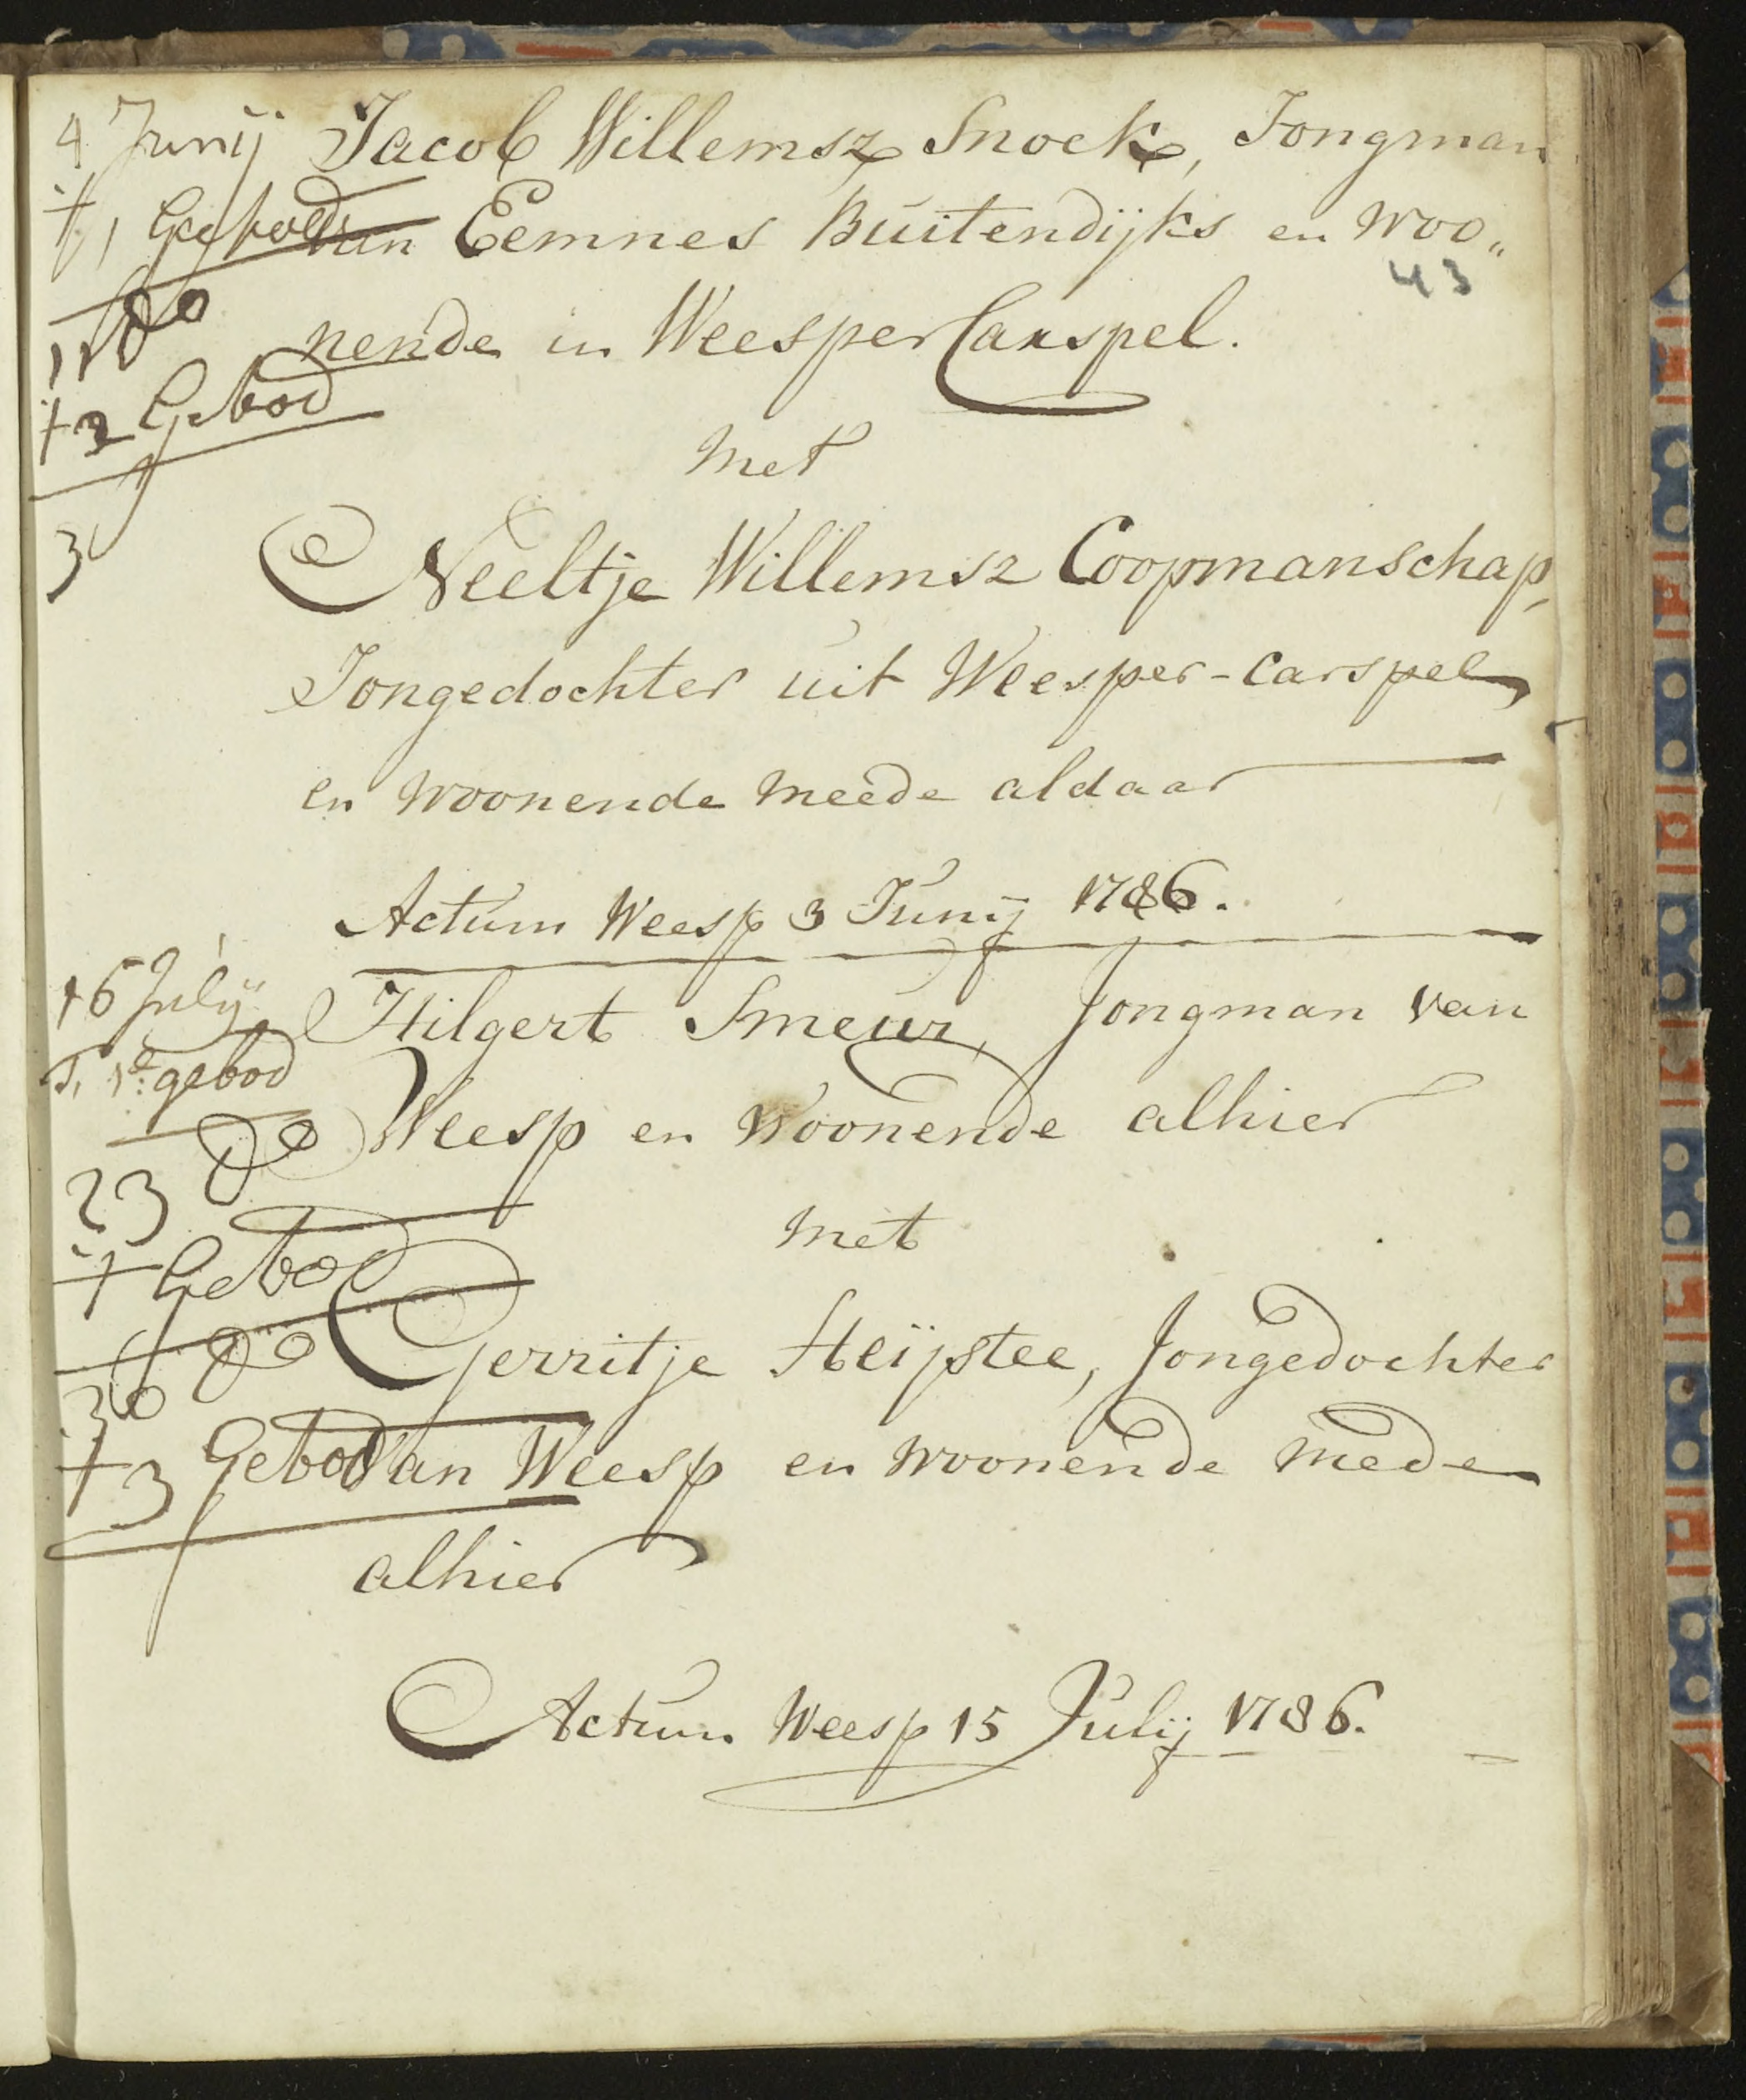 4 Junij Jacob Willemsz Snoek, Jongman
1 Gebod van Eemnes Buitendijks en woo„
43
11 do nende in Weesper Carspel.
2 Gebod
met
3
Neeltje Willemsz Coopmanschap,
Jongedochter uit Weesper-Carspel
en woonende meede aldaar
Actum Weesp 3 Junij 1786.
16 Julij Hilgert Smeur, Jongman van
1e gebod
do Weesp en woonende alhier
23
met
Gebod
do Gerritje Heijstee, Jongedochter
30
3 Gebod van Weesp en woonende mede
alhier
Actum Weesp 15 Julij 1786.